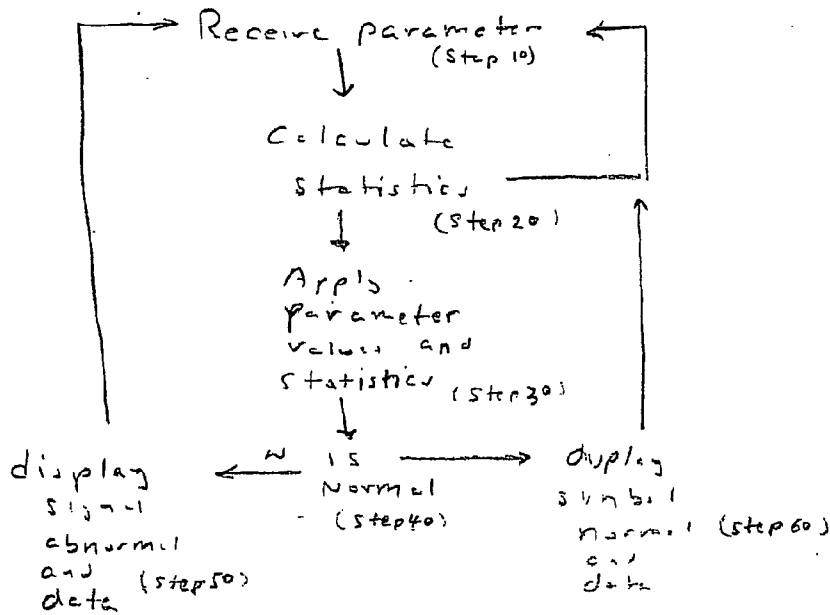 Receive parameter
(Step 10)
Calculate
statistics
(Step 20)
Apply
parameter
values and
statistics (Step 30)
display
signal
abnormal
and
data (Step 50)
N
is
Normal
(Step 40)
display
symbol
normal (Step 60)
and
data